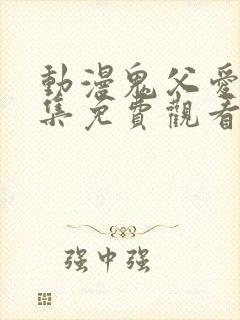 動漫鬼父愛
集免費觀看
强中强